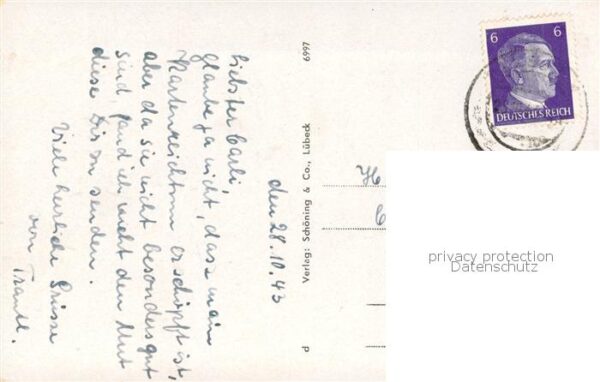 den 28.10.43
Liebster Carli,
glaube ja nicht, dass mein
Kartenreichtum erschöpft ist,
aber da sie nicht besonders gut
sind, fand ich nicht den Mut
diese Dir zu senden.
Viele herzliche Grüsse
von
Trautl.
6997
Verlag: Schöning & Co., Lübeck
P
6 6
DEUTSCHES REICH
privacy protection
Datenschutz